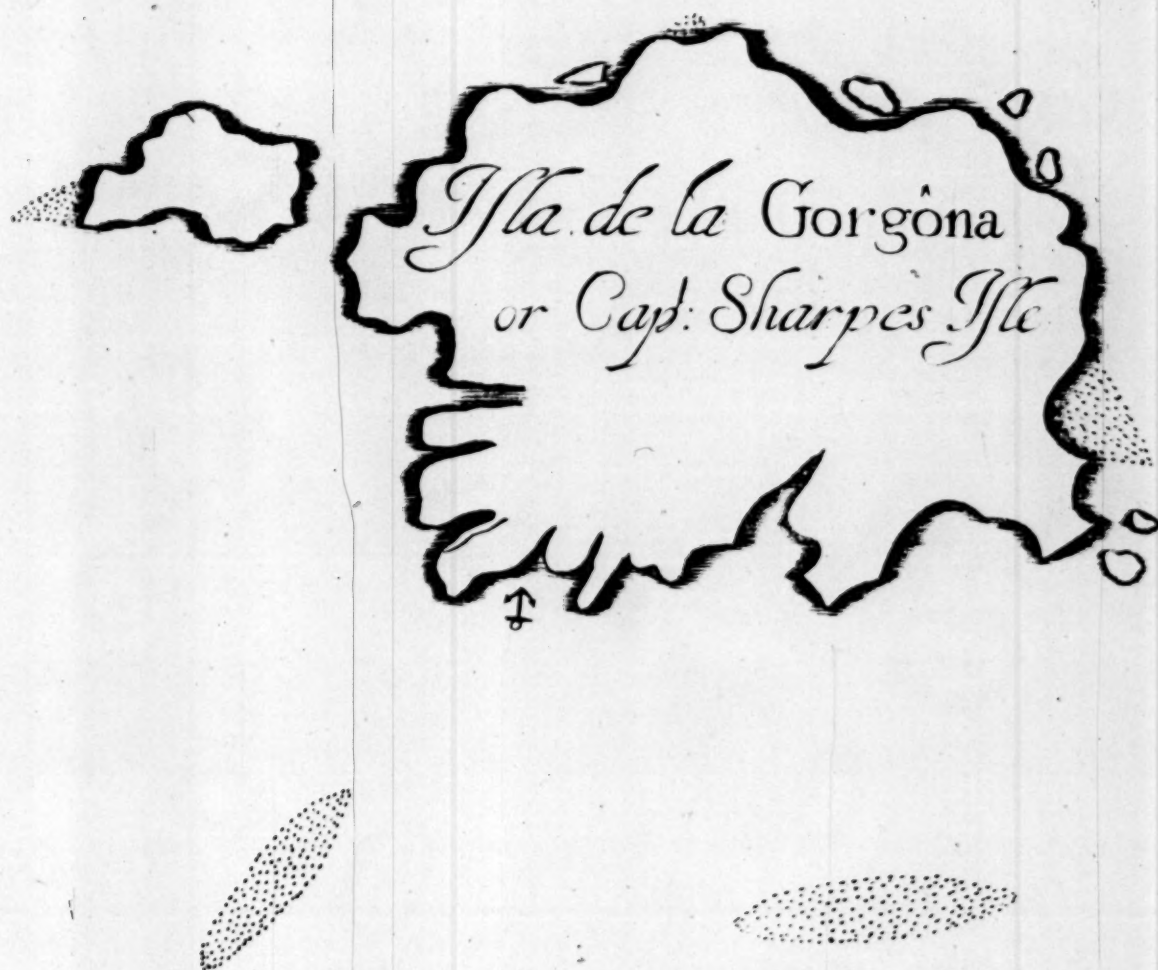 Iſla de la Gorgôna
or Capᵗ: Sharpes Iſle